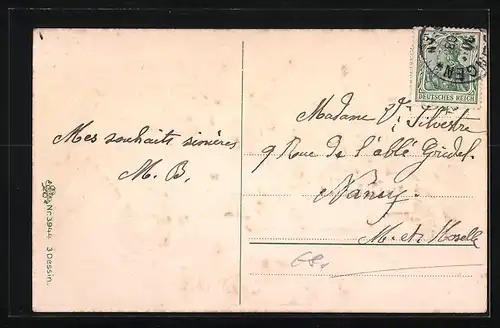 Mes souhaits sincères
M. B.
Madame V. Silvestre
9 Rue de l'abbé Gridel.
Nancy.
M. et Moselle
DEUTSCHES REICH
Nr. 3944 3 Dessin.